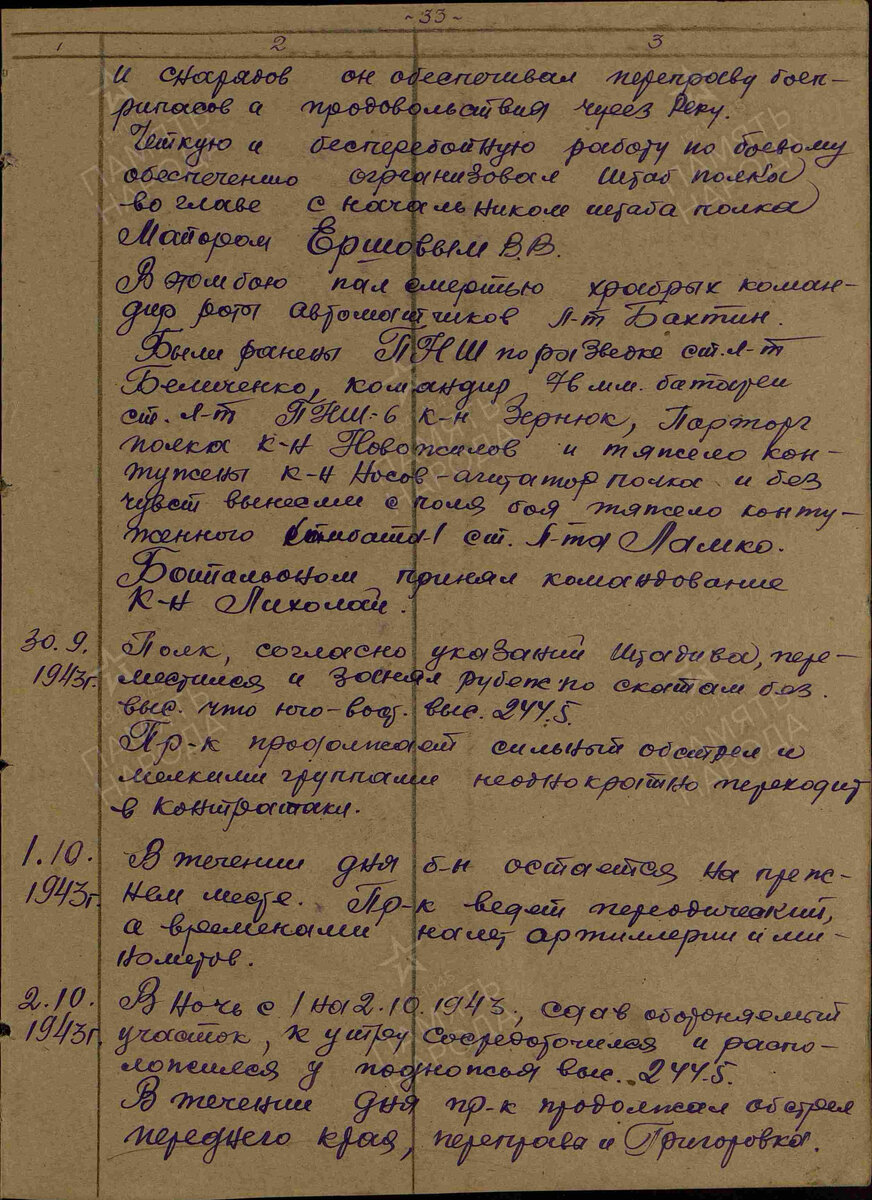 - 33 -
1 2 3
и снарядов он обеспечивал переправу боеп-
рипасов и продовольствия через реку.
Четкую и бесперебойную работу по боевому
обеспечению организовал штаб полка
во главе с начальником штаба полка
Майором Ершовым В.В.
В этом бою пал смертью храбрых коман-
дир роты автоматчиков л-т Бахтин.
Были ранены ПНШ по разведке ст. л-т
Беличенко, командир 76 мм. батареи
ст. л-т ПНШ-6 к-н Зернюк, Парторг
полка к-н Новожилов и тяжело кон-
тужены к-н Носов - агитатор полка и без
чувст вынесли с поля боя тяжело конту-
женного ст. л-та Ламко.
Баттальоном принял командование
к-н Лихолай.
30.9. Полк, согласно указаний Штадива, пере-
1943г. местился и занял рубеж по скатам без.
выс. что юго-вост. выс. 244.5.
Пр-к продолжает сильный обстрел и
мелкими группами неоднократно переходит
в контратаки.
1.10. В течении дня б-н остается на преж-
1943г. нем месте. Пр-к ведет периодический,
а временами налет артиллерии и ми-
нометов.
2.10. В ночь с 1 на 2.10.1943, сдав обороняемый
1943г. участок, к утру сосредоточился и распо-
ложился у подножья выс. 244.5.
В течении дня пр-к продолжал обстрел
переднего края, переправа и Григоровка.